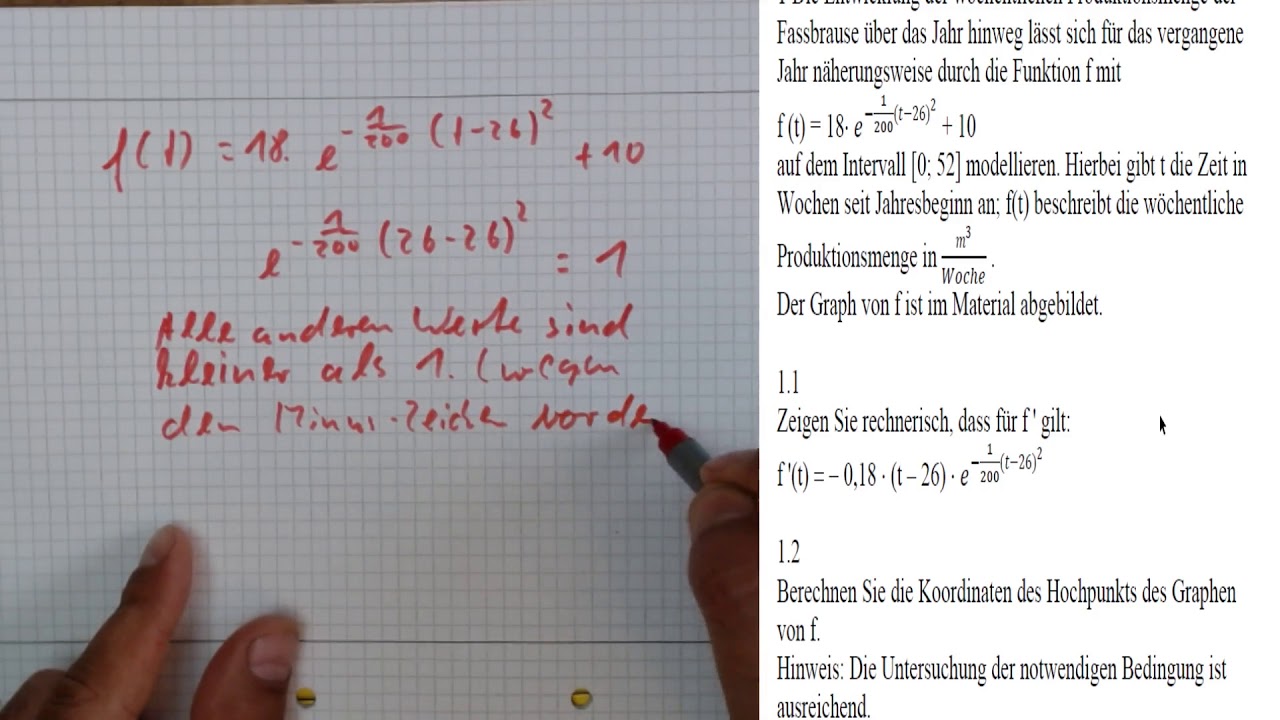 f(t) = 18. e^{-\frac{1}{200}(t-26)^2} + 10
e^{-\frac{1}{200}(26-26)^2} = 1
Alle anderen Werte sind
kleiner als 1. (wegen
dem Minus-Zeichen vorde
1 Die Entwicklung der wöchentlichen Produktionsmenge der
Fassbrause über das Jahr hinweg lässt sich für das vergangene
Jahr näherungsweise durch die Funktion f mit
f (t) = 18· e^{-\frac{1}{200}(t-26)^2} + 10
auf dem Intervall [0; 52] modellieren. Hierbei gibt t die Zeit in
Wochen seit Jahresbeginn an; f(t) beschreibt die wöchentliche
Produktionsmenge in \frac{m^3}{Woche} .
Der Graph von f ist im Material abgebildet.
1.1
Zeigen Sie rechnerisch, dass für f ' gilt:
f '(t) = – 0,18 · (t – 26) · e^{-\frac{1}{200}(t-26)^2}
1.2
Berechnen Sie die Koordinaten des Hochpunkts des Graphen
von f.
Hinweis: Die Untersuchung der notwendigen Bedingung ist
ausreichend.